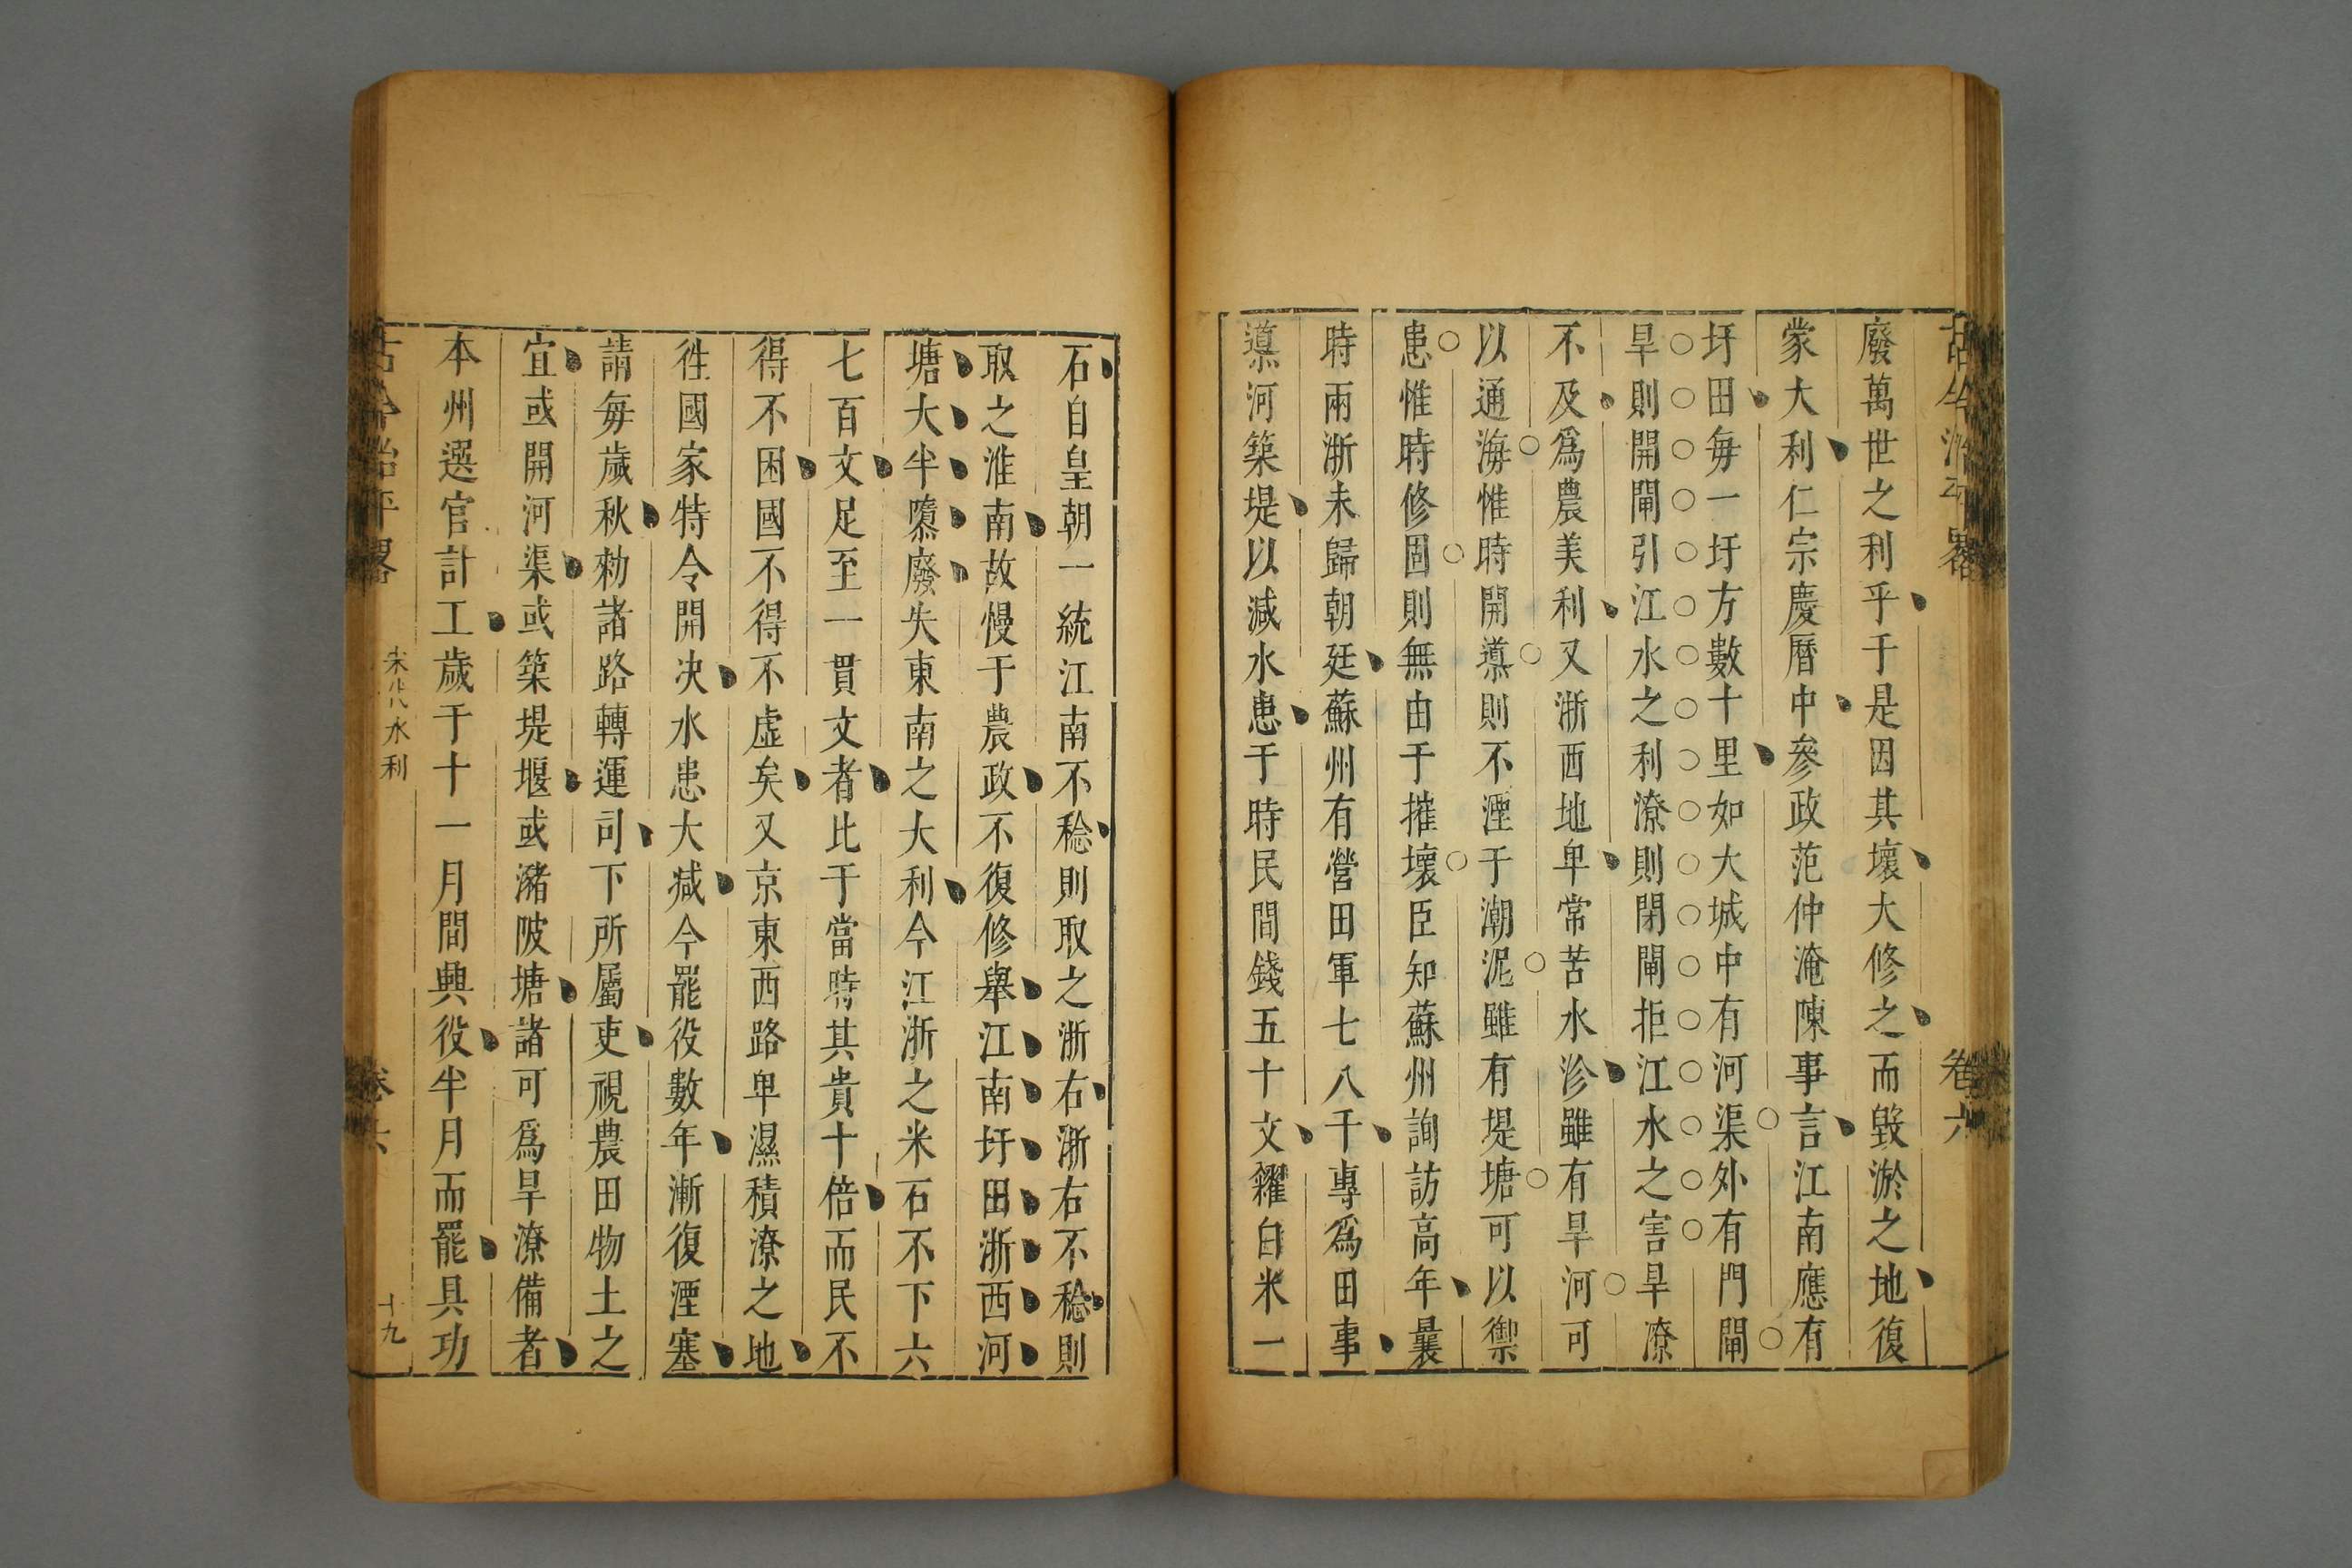 古今治平畧 卷六
廢萬世之利乎于是因其壞大修之而毀淤之地復
蒙大利仁宗慶曆中參政范仲淹陳事言江南應有
圩田每一圩方數十里如大城中有河渠外有門閘
旱則開閘引江水之利潦則閉閘拒江水之害旱潦
不及爲農美利又浙西地卑常苦水沴雖有旱河可
以通海惟時開導則不湮于潮泥雖有堤塘可以禦
患惟時修固則無由于摧壞臣知蘇州詢訪高年曩
時兩浙未歸朝廷蘇州有營田軍七八千專爲田事
導河築堤以减水患于時民間錢五十文糴白米一
石自皇朝一統江南不稔則取之浙右浙右不稔則
取之淮南故慢于農政不復修舉江南圩田浙西河
塘大半隳廢失東南之大利今江浙之米石不下六
七百文足至一貫文者比于當時其貴十倍而民不
得不困國不得不虛矣又京東西路卑濕積潦之地
徃國家特令開决水患大减今罷役數年漸復湮塞
請每歲秋勑諸路轉運司下所屬吏視農田物土之
宜或開河渠或築堤堰或瀦陂塘諸可爲旱潦備者
本州選官計工歲于十一月間興役半月而罷具功
古今治平畧 宋代水利 卷六 十九